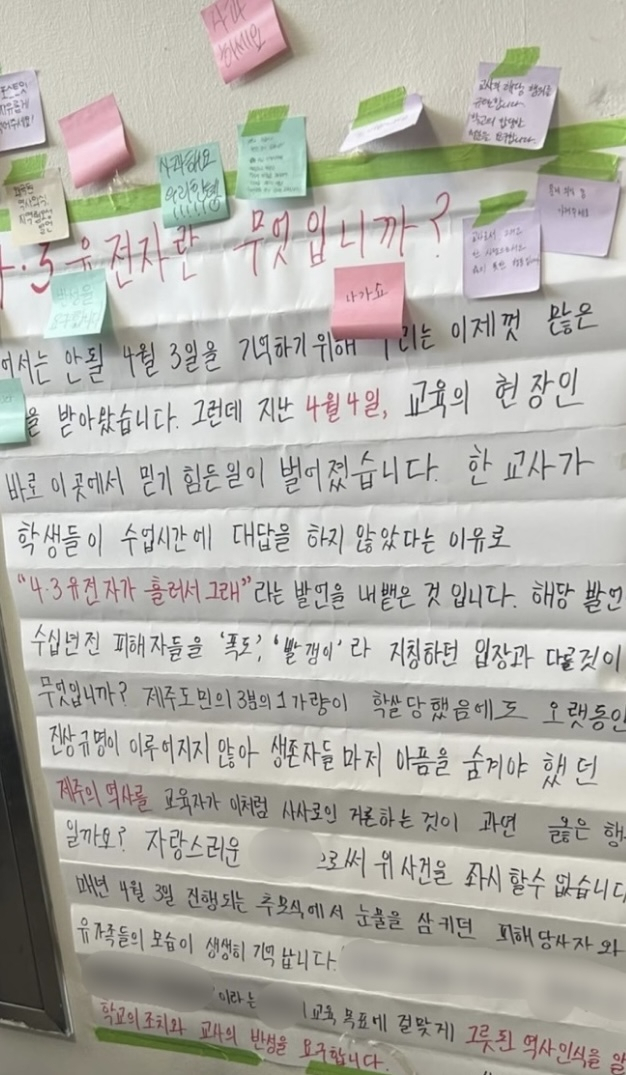 사과
하세요
포스트잇
자유롭게
사과해요
우리한테
!!!!!!
역사의식
발언
교사의 해당 행위를
규탄합니다.
4·3유전자란 무엇입니까?
반성을
나가쇼
어서는 안될 4월 3일을 기억하기 위해 우리는 이제껏 많은
을 받아왔습니다. 그런데 지난 4월4일, 교육의 현장인
바로 이곳에서 믿기 힘든일이 벌어졌습니다. 한 교사가
학생들이 수업시간에 대답을 하지 않았다는 이유로
"4·3유전자가 흘러서 그래"라는 발언을 내뱉은 것 입니다. 해당 발언
수십년전 피해자들을 '폭도', '빨갱이'라 지칭하던 입장과 다를것이
무엇입니까? 제주도민의 3분의 1 가량이 학살당했음에도 오랫동안
진상규명이 이루어지지 않아 생존자들마저 아픔을 숨겨야 했던
제주의 역사를 교육자가 이처럼 사사로이 거론하는 것이 과연 옳은 행
일까요? 자랑스러운 으로써 위 사건을 좌시 할수 없습니다
매년 4월 3일 진행되는 추모식에서 눈물을 삼키던 피해당사자와
유가족들의 모습이 생생히 기억 납니다.
이라는 교육 목표에 걸맞게 그릇된 역사인식을 알
학교의 조치와 교사의 반성을 요구합니다.